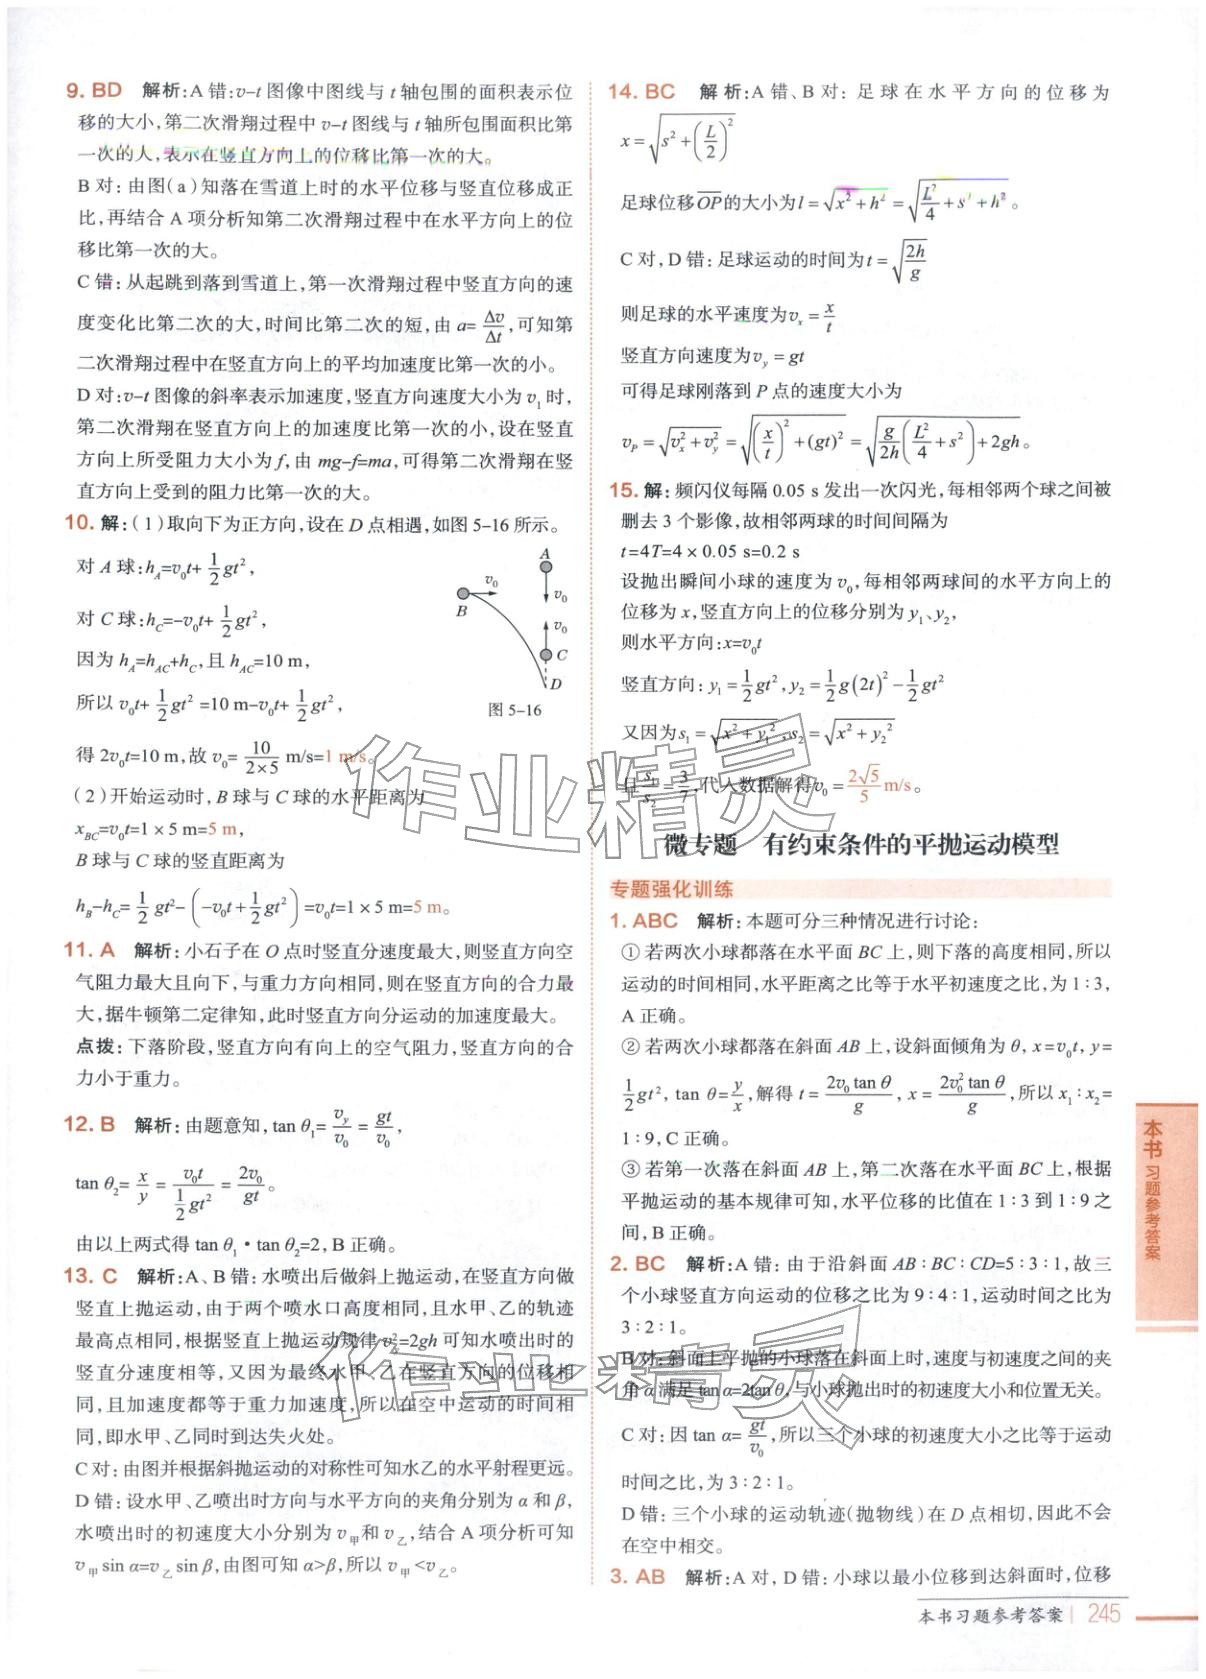 9. BD 解析:A 错:v–t 图像中图线与 t 轴包围的面积表示位
移的大小,第二次滑翔过程中 v–t 图线与 t 轴所包围面积比第
一次的大,表示在竖直方向上的位移比第一次的大。
B 对: 由图(a)知落在雪道上时的水平位移与竖直位移成正
比,再结合 A 项分析知第二次滑翔过程中在水平方向上的位
移比第一次的大。
C 错: 从起跳到落到雪道上,第一次滑翔过程竖直方向的速
度变化比第二次的大,时间比第二次的短,由 a=Δv/Δt,可知第
二次滑翔过程中在竖直方向上的平均加速度比第一次的小。
D 对: v–t 图像的斜率表示加速度,竖直方向速度大小为 v₁时,
第二次滑翔在竖直方向上的加速度比第一次的小,设在竖直
方向上所受阻力大小为 f,由 mg–f=ma,可得第二次滑翔在竖
直方向上受到的阻力比第一次的大。
10. 解: (1)取向下为正方向,设在 D 点相遇,如图 5-16 所示。
对 A 球: h_A=v₀t+1/2 gt²,
对 C 球: h_C=–v₀t+1/2 gt²,
因为 h_A=h_AC+h_C,且 h_AC=10 m,
所以 v₀t+1/2 gt²=10 m–v₀t+1/2 gt²,
A
v₀
B
v₀
v₀
C
D
图 5-16
得 2v₀t=10 m,故 v₀=10/(2×5) m/s=1 m/s。
(2)开始运动时,B 球与 C 球的水平距离为
x_BC=v₀t=1×5 m=5 m,
B 球与 C 球的竖直距离为
h_B–h_C=1/2 gt²–(–v₀t+1/2 gt²)=v₀t=1×5 m=5 m。
11. A 解析: 小石子在 O 点时竖直分速度最大,则竖直方向空
气阻力最大且向下,与重力方向相同,则在竖直方向的合力最
大,据牛顿第二定律知,此时竖直方向分运动的加速度最大。
点拨: 下落阶段,竖直方向有向上的空气阻力,竖直方向的合
力小于重力。
12. B 解析: 由题意知, tan θ₁=v_y/v₀=gt/v₀,
tan θ₂=x/y=v₀t/(1/2 gt²)=2v₀/gt。
由以上两式得 tan θ₁·tan θ₂=2, B 正确。
13. C 解析:A、B 错: 水喷出后做斜上抛运动,在竖直方向做
竖直上抛运动,由于两个喷水口高度相同,且水甲、乙的轨迹
最高点相同,根据竖直上抛运动规律 v_y²=2gh 可知水喷出时的
竖直分速度相等,又因为最终水甲、乙在竖直方向的位移相
同,且加速度都等于重力加速度,所以在空中运动的时间相
同,即水甲、乙同时到达失火处。
C 对: 由图并根据斜抛运动的对称性可知水乙的水平射程更远。
D 错: 设水甲、乙喷出时方向与水平方向的夹角分别为 α 和 β,
水喷出时的初速度大小分别为 v甲和 v乙,结合 A 项分析可知
v甲 sin α=v乙 sin β,由图可知 α>β,所以 v甲<v乙。
14. BC 解析:A 错、B 对: 足球在水平方向的位移为
x=√(s²+(L/2)²)
足球位移OP的大小为 l=√(x²+h²)=√(L²/4+s²+h²)。
C 对, D 错: 足球运动的时间为 t=√(2h/g)
则足球的水平速度为 v_x=x/t
竖直方向速度为 v_y=gt
可得足球刚落到 P 点的速度大小为
v_P=√(v_x²+v_y²)=√((x/t)²+(gt)²)=√(g/2h(L²/4+s²)+2gh)。
15. 解: 频闪仪每隔 0.05 s 发出一次闪光,每相邻两个球之间被
删去 3 个影像,故相邻两球的时间间隔为
t=4T=4×0.05 s=0.2 s
设抛出瞬间小球的速度为 v₀,每相邻两球间的水平方向上的
位移为 x,竖直方向上的位移分别为 y₁、y₂,
则水平方向: x=v₀t
竖直方向: y₁=1/2 gt², y₂=1/2 g(2t)²–1/2 gt²
又因为 s₁=√(x²+y₁²), s₂=√(x²+y₂²)
且 s₁/s₂=3/7,代入数据解得 v₀=2√5/5 m/s。
微专题 有约束条件的平抛运动模型
专题强化训练
1. ABC 解析: 本题可分三种情况进行讨论:
① 若两次小球都落在水平面 BC 上,则下落的高度相同,所以
运动的时间相同,水平距离之比等于水平初速度之比,为 1∶3,
A 正确。
② 若两次小球都落在斜面 AB 上,设斜面倾角为 θ, x=v₀t, y=
1/2 gt², tan θ=y/x,解得 t=2v₀ tan θ/g, x=2v₀² tan θ/g,所以 x₁∶x₂=
1∶9, C 正确。
③ 若第一次落在斜面 AB 上,第二次落在水平面 BC 上,根据
平抛运动的基本规律可知,水平位移的比值在 1∶3 到 1∶9 之
间, B 正确。
2. BC 解析:A 错: 由于沿斜面 AB∶BC∶CD=5∶3∶1,故三
个小球竖直方向运动的位移之比为 9∶4∶1,运动时间之比为
3∶2∶1。
B 对: 斜面上平抛的小球落在斜面上时,速度与初速度之间的夹
角 α 满足 tan α=2tan θ,与小球抛出时的初速度大小和位置无关。
C 对: 因 tan α=gt/v₀,所以三个小球的初速度大小之比等于运动
时间之比,为 3∶2∶1。
D 错: 三个小球的运动轨迹(抛物线)在 D 点相切,因此不会
在空中相交。
3. AB 解析:A 对, D 错: 小球以最小位移到达斜面时,位移
本书 习题参考答案
作业精灵
作业精灵
本书习题参考答案 245